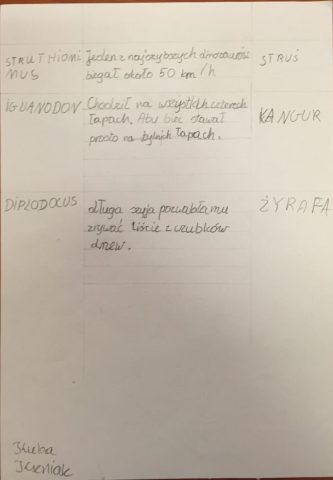 STRUTHIONI
MUS
Jeden z najszybszych dinozaurów
biegał około 50 km/h
STRUŚ
IGUANODON
Chodził na wszystkich czterech
łapach. Aby biec stawał
prosto na tylnich łapach.
KANGUR
DIPLODOCUS
długa szyja pozwabła mu
zrywać liście z czubków
drzew.
ŻYRAFA
Kuba